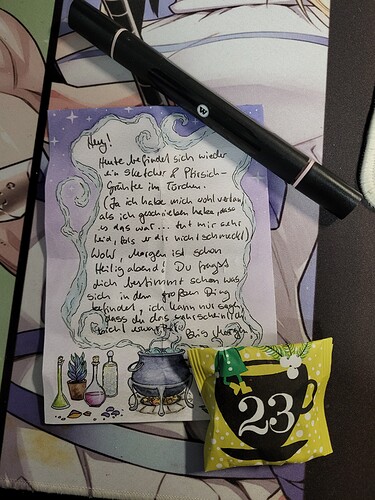 W
Hey!
Heute befindet sich wieder
ein Sketcher & Pfirsich-
Grüntee im Törchen.
(Ja ich habe mich wohl vertan,
als ich geschrieben habe, dass
es das war... tut mir sehr
leid, falls er dir nicht schmeckt)
Wohl, morgen ist schon
Heiligabend! Du fragst
dich bestimmt schon was
sich in dem großen Ding
befindet, ich kann nur sagen
dass du das wahrscheinlich
nicht
Bis Morgen,
23